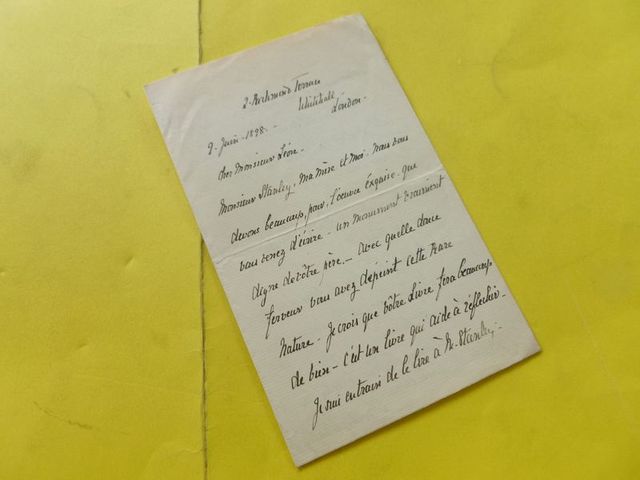 2. Richmond Terrace
Whitehall.
London.
9. Juin. 1898.
Cher Monsieur Léon.
Monsieur Stanley, ma mère et moi. nous vous
devons beaucoup, pour, l'oeuvre exquise. que
vous venez d'écrire - un monument vraiment
digne de vôtre père. - Avec quelle douce
ferveur vous avez dépeint cette rare
nature - Je crois que vôtre livre fera beaucoup
de bien - c'est un livre qui aide à réfléchir.
Je suis en train de le lire à Mr. Stanley.